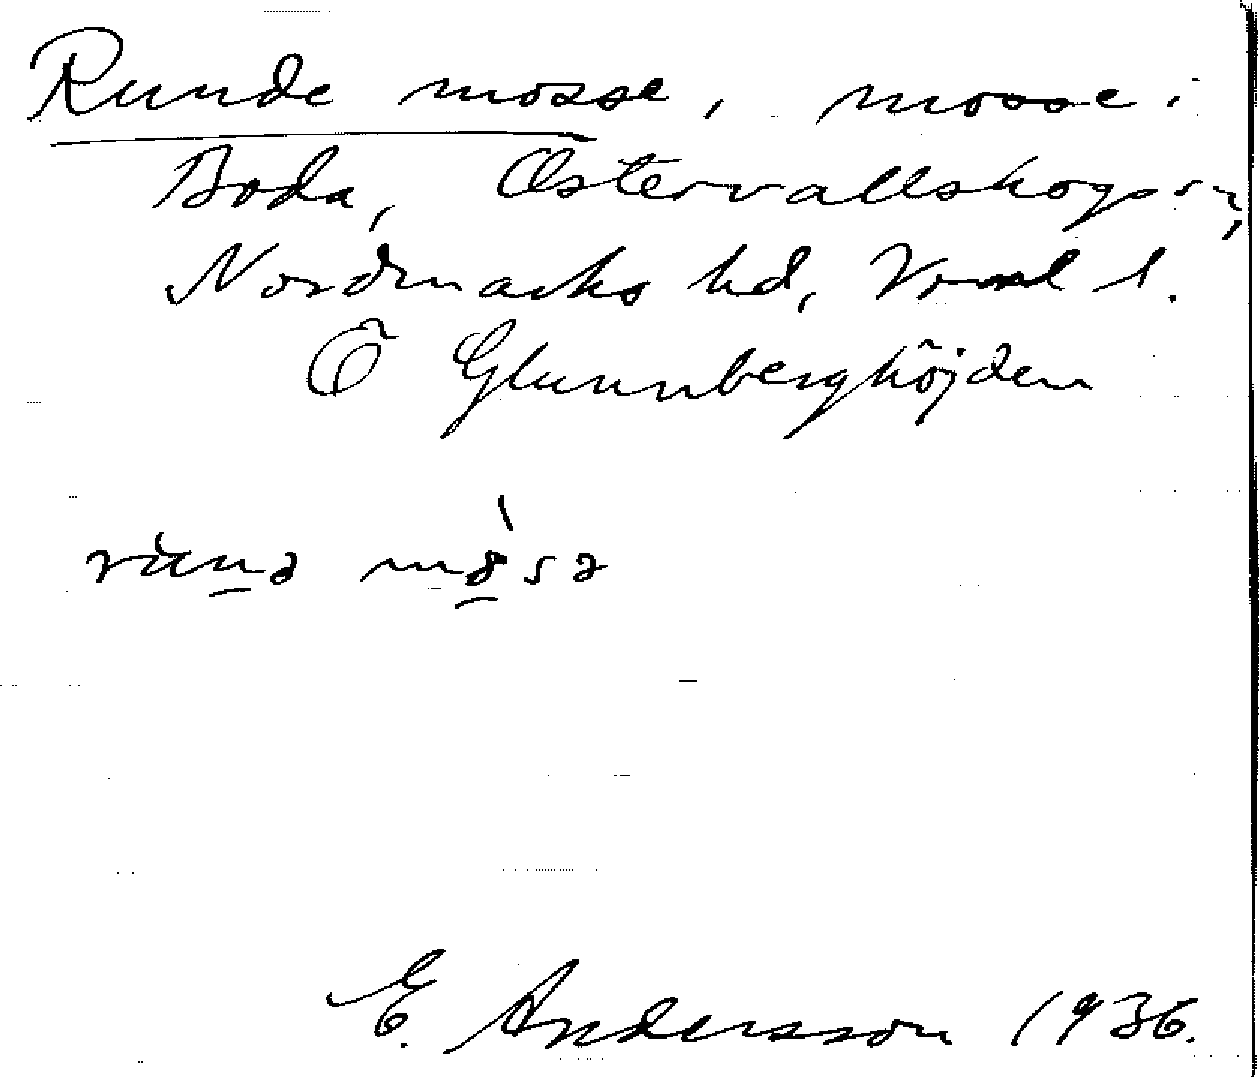 Runde mosse, mosse i
Boda, Östervallskogs sn,
Nordmarks hd, Vrml l.
Ö Glunnberghöjden
E. Andersson 1936.